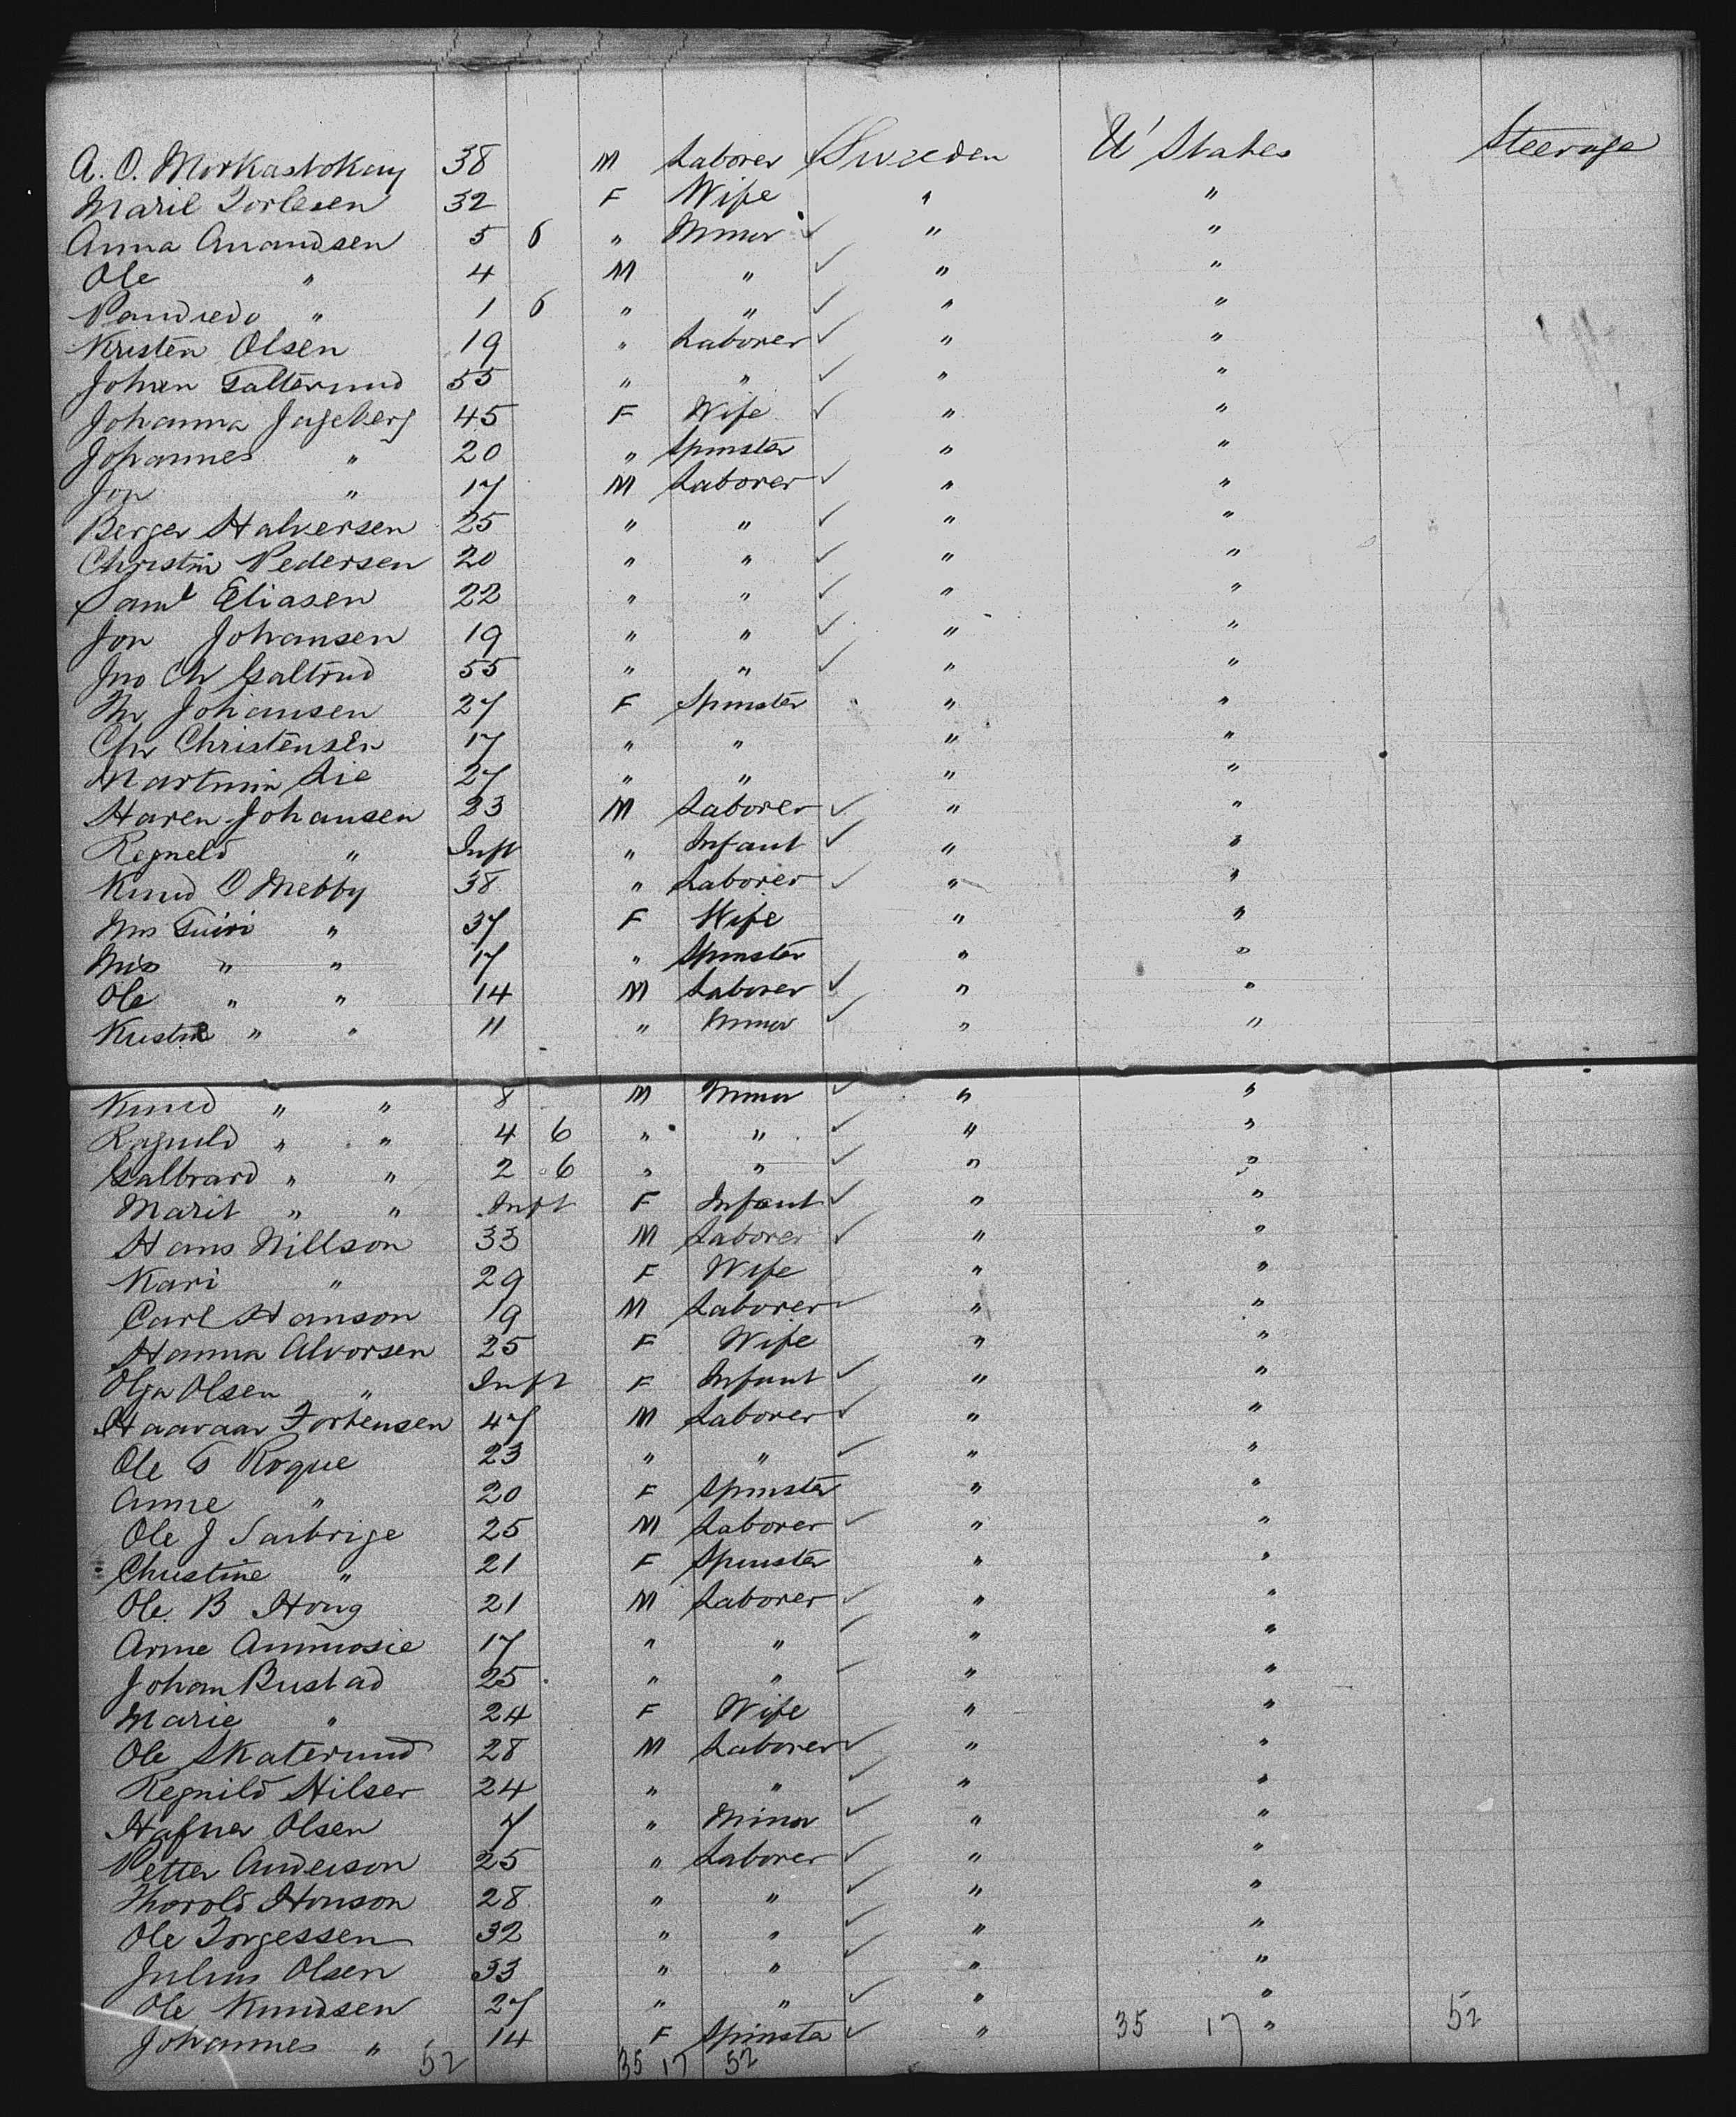 A. O. Morkastokay 38 M Laborer Sweeden U' States Steerage
Maril Torlesen 32 F Wife " "
Anna Anandsen 5 6 " Minor ✓ " "
Ole " 4 M " ✓ " "
" 1 6 " " ✓ " "
Kristen Olsen 19 " Laborer ✓ " "
Johan Galterund 55 " " ✓ " "
Johanna Jageberg 45 F Wife ✓ " "
Johannes " 20 " Spinster " "
Jon " 17 M Laborer ✓ " "
Berger Halversen 25 " " ✓ " "
Christin Pedersen 20 " " ✓ " "
Saml Eliasen 22 " " ✓ " "
Jon Johansen 19 " " ✓ " "
Jno Ch Galtrud 55 " " ✓ " "
M Johansen 27 F Spinster " "
Chr Christensen 17 " " " "
Martinin Lie 27 " " " "
Haren Johansen 23 M Laborer ✓ " "
Regneld " Inft " Infant ✓ " "
Knud O Mebby 38 " Laborer ✓ " "
Mrs Guiri " 37 F Wife " "
Miss " " 17 " Spinster " "
Ole " " 14 M Laborer ✓ " "
Kristie " " 11 " Minor ✓ " "
Knud " " 8 M Minor ✓ " "
Ragnild " " 4 6 " " ✓ " "
Galbrard " " 2 6 " " ✓ " "
Marit " " Inft F Infant ✓ " "
Hans Nillson 33 M Laborer ✓ " "
Kari " 29 F Wife " "
Carl Hanson 19 M Laborer ✓ " "
Hanna Alvorsen 25 F Wife " "
Olga Olsen " Inft F Infant ✓ " "
Haavaar Tortensen 47 M Laborer ✓ " "
Ole G Roque 23 " " ✓ " "
Anne " 20 F Spinster " "
Ole J Sarbrige 25 M Laborer ✓ " "
Christine " 21 F Spinster " "
Ole B Hong 21 M Laborer ✓ " "
Arne Ammosie 17 " " ✓ " "
Johan Bustad 25 " " ✓ " "
Marie " 24 F Wife " "
Ole Skaterund 28 M Laborer ✓ " "
Regnild Hilser 24 " " ✓ " "
Hafner Olsen 7 " Minor ✓ " "
Petter Anderson 25 " Laborer ✓ " "
Thorold Honson 28 " " ✓ " "
Ole Torgessen 32 " " ✓ " "
Julius Olsen 33 " " ✓ " "
Ole Knudsen 27 " " ✓ " "
Johannes " 14 F Spinster ✓ " 35 17 " 52
52 35 17 52